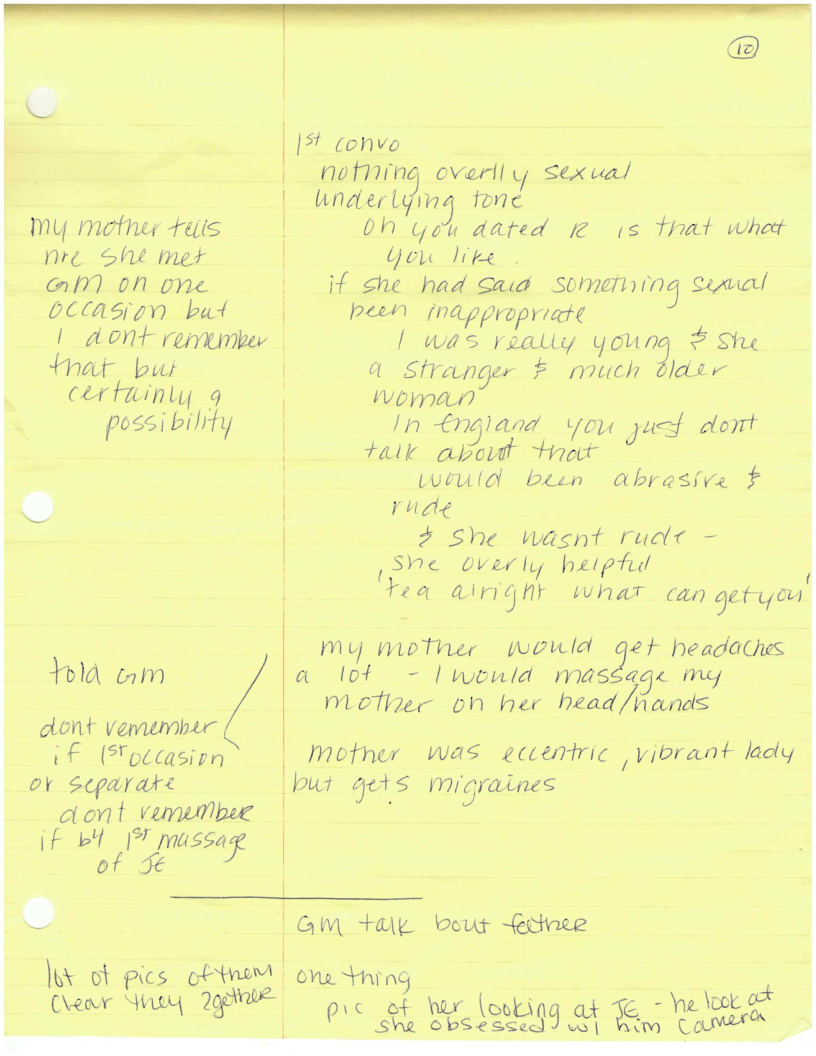 10
1st convo
nothing overlly sexual
underlying tone
oh you dated R is that what
you like.
if she had said something sexual
been inappropriate
I was really young & she
a stranger & much older
woman
In England you just dont
talk about that
would been abrasive &
rude
& she wasnt rude -
she overly helpful
'tea alright what can get you'
my mother tells
me she met
GM on one
occasion but
I dont remember
that but
certainly a
possibility
my mother would get headaches
a lot - I would massage my
mother on her head/hands
mother was eccentric, vibrant lady
but gets migraines
told GM
dont remember
if 1st occasion
or separate
dont remember
if b4 1st massage
of JE
GM talk bout father
lot of pics of them
clear they 2gether
one thing
pic of her looking at JE - he look at
she obsessed w/ him camera